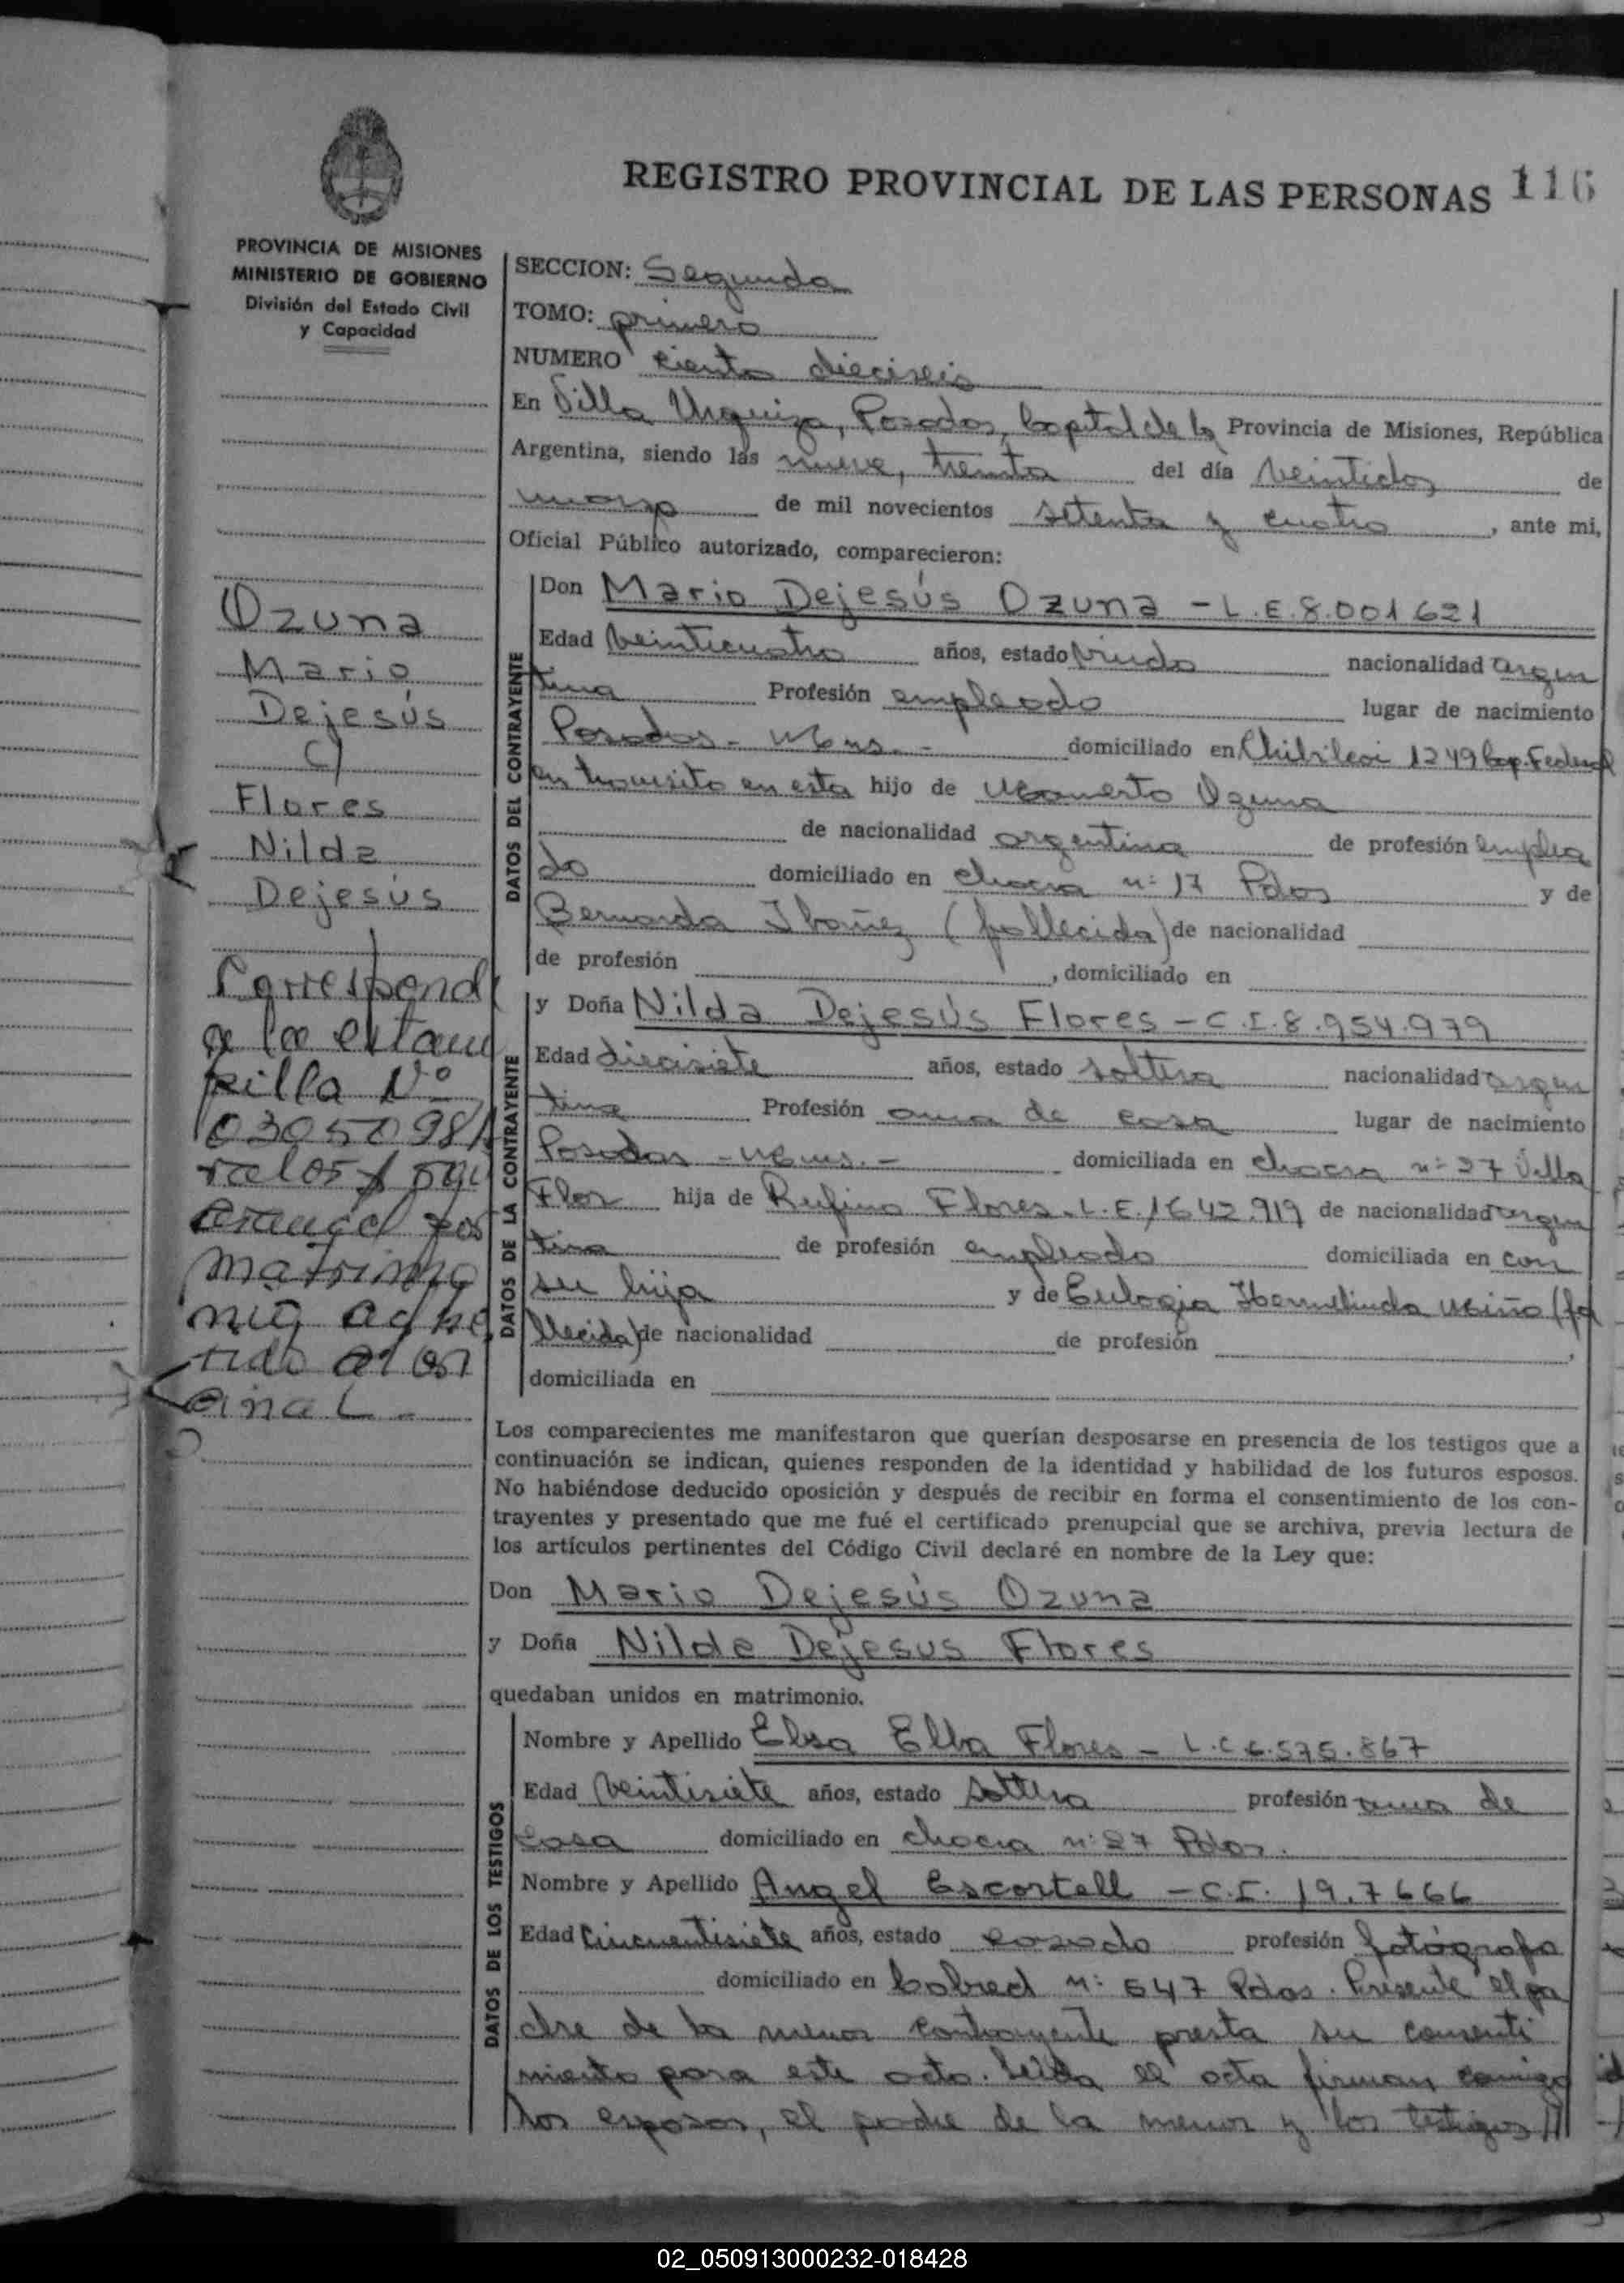 REGISTRO PROVINCIAL DE LAS PERSONAS 116
PROVINCIA DE MISIONES
MINISTERIO DE GOBIERNO
División del Estado Civil
y Capacidad
SECCION: Segunda
TOMO: primero
NUMERO ciento dieciseis
En Villa Urquiza, Posadas, Capital de la Provincia de Misiones, República
Argentina, siendo las nueve, treinta del día veintidos de
marzo de mil novecientos setenta y cuatro, ante mi,
Oficial Público autorizado, comparecieron:
Ozuna
Mario
Dejesús
c/
Flores
Nilda
Dejesús
Correspond
a la estam
pilla Nº
0305098
valos
arancel por
matrimo
nio adhe
rido al ori
ginal -
DATOS DEL CONTRAYENTE
Don Mario Dejesús Ozuna - L.E. 8.001621
Edad veinticuatro años, estado viudo nacionalidad argen
tina Profesión empleado lugar de nacimiento
Posadas - Mnes. - domiciliado en Chibilcoi 1249 Cap. Federal
en transito en esta hijo de Mamerto Ozuna
de nacionalidad argentina de profesión emplea
do domiciliado en chacra nº 17 Pdas y de
Bernarda Ibañez (fallecida) de nacionalidad
de profesión , domiciliado en
DATOS DE LA CONTRAYENTE
y Doña Nilda Dejesús Flores - C.I. 8.954.979
Edad diecisiete años, estado soltera nacionalidad argen
tina Profesión ama de casa lugar de nacimiento
Posadas - Mnes. - domiciliada en chacra nº 27 Villa
Flor hija de Rufino Flores. L.E. 1642.919 de nacionalidad argen
tina de profesión empleado domiciliada en con
su hija y de Eulogia Hermelinda Miño (fa
llecida) de nacionalidad de profesión ,
domiciliada en
Los comparecientes me manifestaron que querían desposarse en presencia de los testigos que a
continuación se indican, quienes responden de la identidad y habilidad de los futuros esposos.
No habiéndose deducido oposición y después de recibir en forma el consentimiento de los con-
trayentes y presentado que me fué el certificado prenupcial que se archiva, previa lectura de
los artículos pertinentes del Código Civil declaré en nombre de la Ley que:
Don Mario Dejesús Ozuna
y Doña Nilda Dejesus Flores
quedaban unidos en matrimonio.
DATOS DE LOS TESTIGOS
Nombre y Apellido Elsa Elba Flores - L.C 6.575.867
Edad veintisiete años, estado soltera profesión ama de
casa domiciliado en chacra nº 27 Pdas.
Nombre y Apellido Angel Escortell - C.I. 19.7666
Edad cincuentisiete años, estado casado profesión fotógrafo
domiciliado en Cabred nº 647 Pdas. Presente el pa
dre de la menor contrayente presta su consenti
miento para este acto. Leída el acta firman conmigo
los esposos, el padre de la menor y los testigos //
02_050913000232-018428